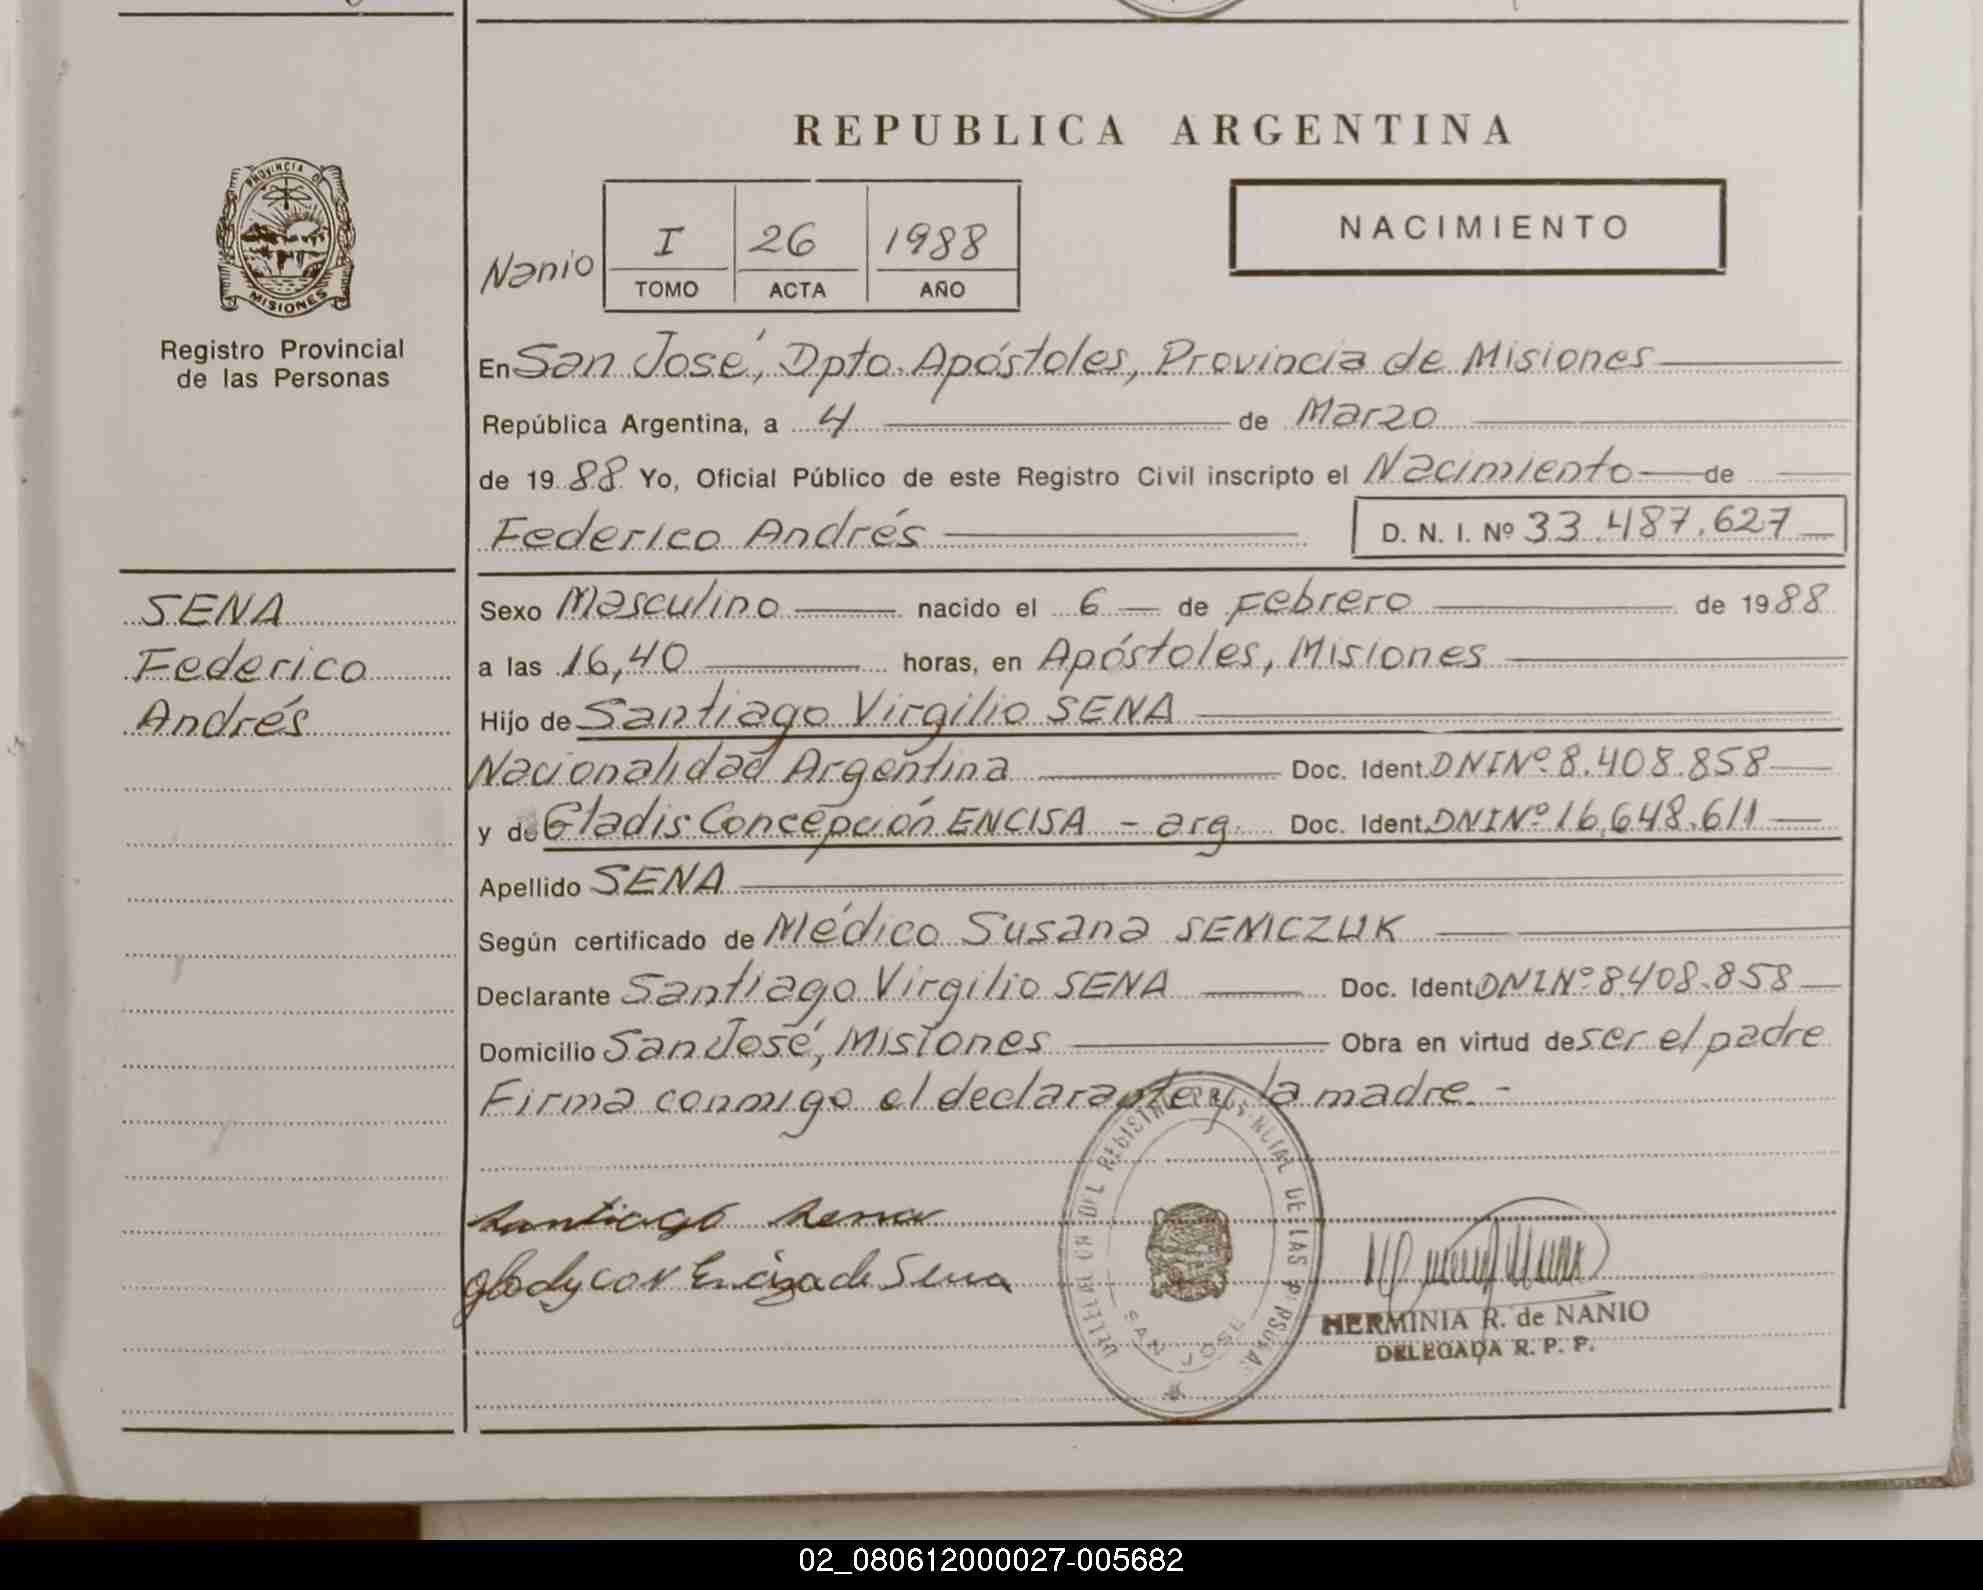 REPUBLICA ARGENTINA
NACIMIENTO
Nanio
I 26 1988
TOMO ACTA AÑO
PROVINCIA DE
MISIONES
Registro Provincial
de las Personas
En San José, Dpto. Apóstoles, Provincia de Misiones
República Argentina, a 4 de Marzo
de 1988 Yo, Oficial Público de este Registro Civil inscripto el Nacimiento de
Federico Andrés D. N. I. Nº 33.487.627
SENA
Federico
Andrés
Sexo Masculino nacido el 6 de Febrero de 1988
a las 16,40 horas, en Apóstoles, Misiones
Hijo de Santiago Virgilio SENA
Nacionalidad Argentina Doc. Ident. DNINº 8.408.858
y de Gladis Concepción ENCISA - arg. Doc. Ident. DNINº 16,648.611
Apellido SENA
Según certificado de Médico Susana SEMCZUK
Declarante Santiago Virgilio SENA Doc. Ident DNINº 8408.858
Domicilio San José, Misiones Obra en virtud de ser el padre
Firma conmigo el declarante y la madre.-
Santiago Sena
de Sena
DEL REGISTRO DE LAS
SAN JOSE
HERMINIA R. de NANIO
DELEGADA R. P. P.
02_080612000027-005682